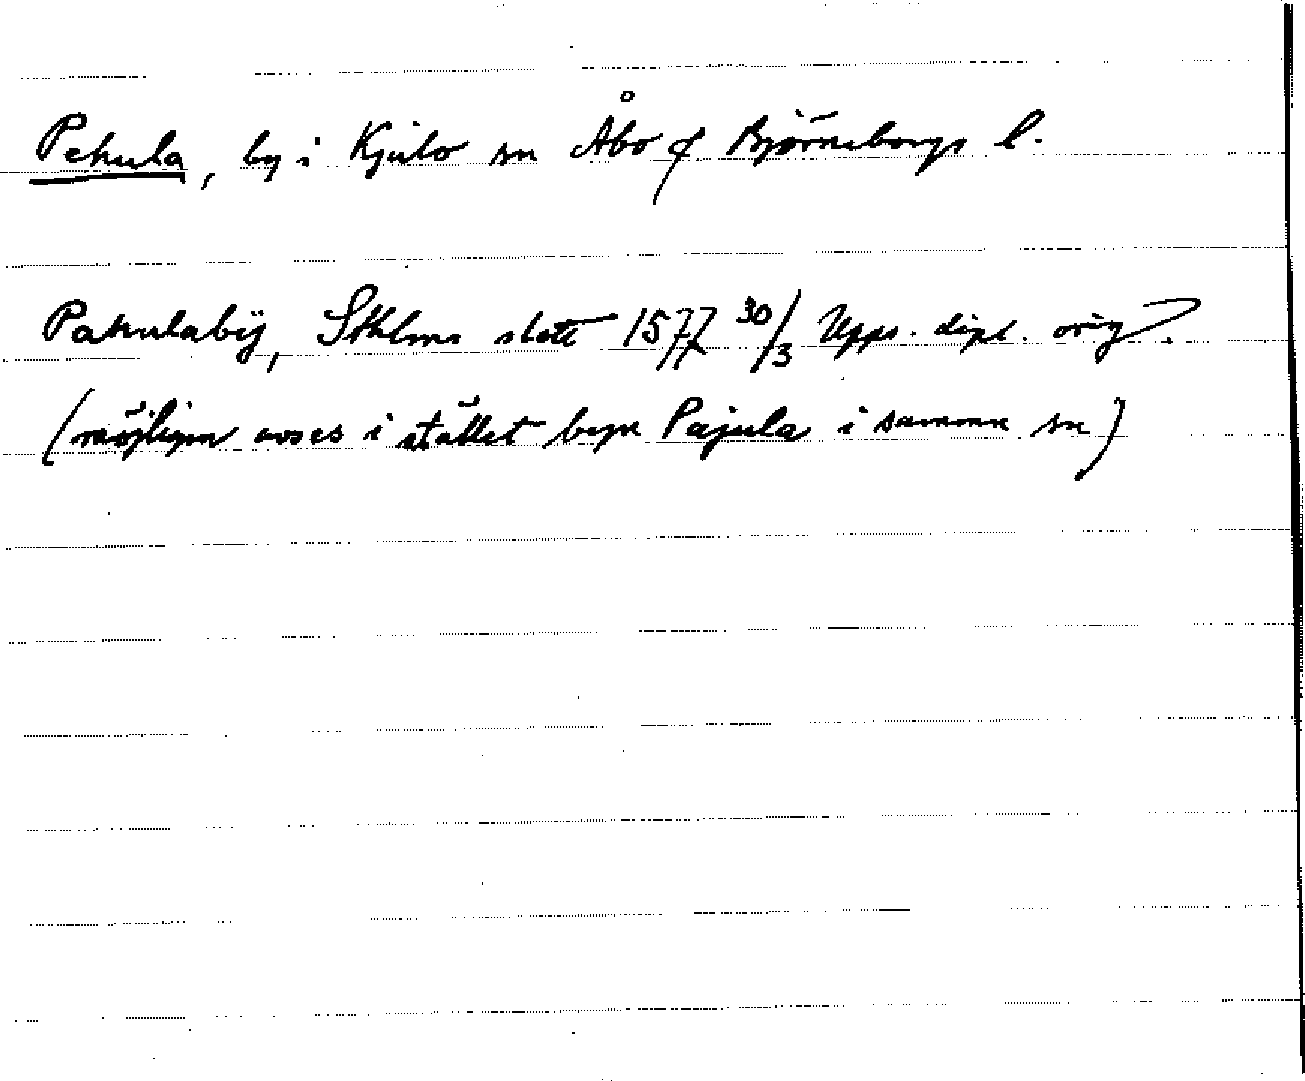 Pekula, by i Kjulo sn Åbo o Björneborgs l.
Pakulabÿ, Sthlms slott 1577 30/3 Upps. dipl. orig.
(möjligen avses i stället byn Pajula i samma sn)